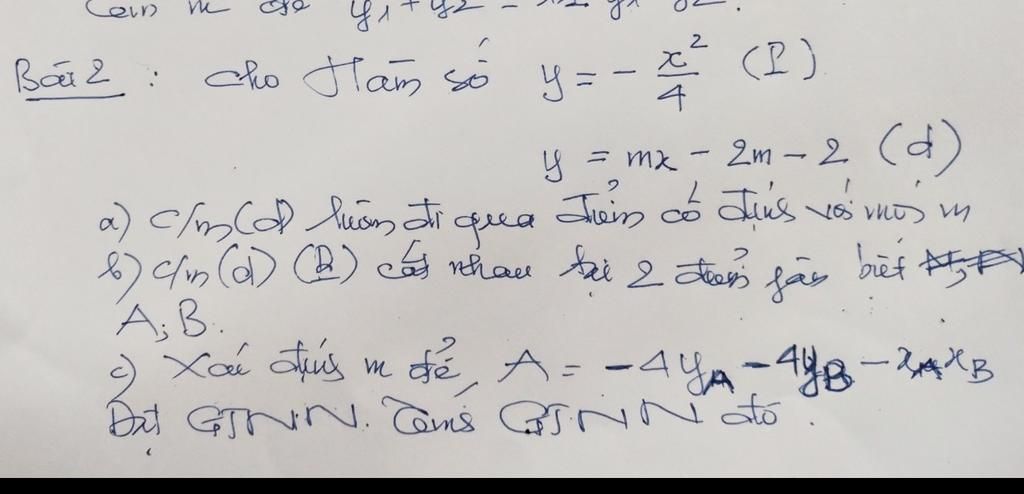 để y₁ + y₂ = y₁ y₂.
Bài 2 : Cho Hàm số y = - x²/4 (P)
y = mx - 2m - 2 (d)
a) C/m (d) luôn đi qua điểm cố định với mọi m
b) C/m (d) (P) cắt nhau tại 2 điểm fân biệt
A; B.
c) Xác định m để A = -4y_A - 4y_B - x_A x_B
Đạt GTNN. Tìm GTNN đó.